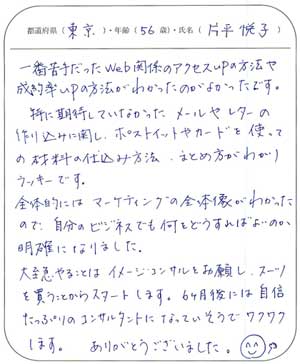 都道府県（東京）・年齢（56歳）・氏名（片平悦子）
一番苦手だったWeb関係のアクセスupの方法や
成約率upの方法がわかったのがよかったです。
特に期待していなかった メールやレターの
作り込みに関し、ポストイットやカードを使って
の材料の仕込み方法、まとめ方がわかり
ラッキーです。
全体的にはマーケティングの全体像がわかった
ので、自分のビジネスでも何をどうすればよいのか
明確になりました。
大至急やることはイメージ・コンサルをお願し、スーツ
を買うことからスタートします。6ヶ月後には自信
たっぷりのコンサルタントになっていそうでワクワク
します。 ありがとうございました。